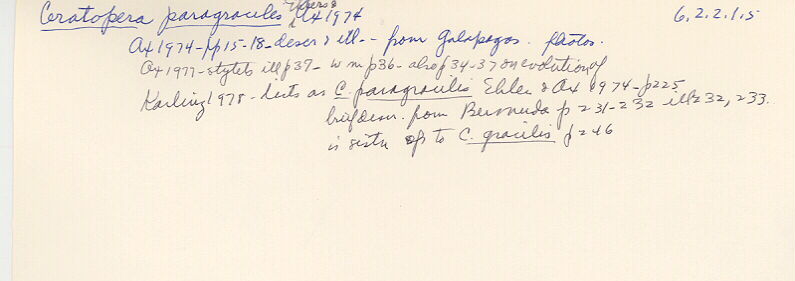 Ceratopera paragracilis Ehlers & Ax 1974 6.2.2.1.5
Ax 1974-pp15-18-descr & ill-- from Galapagos. photos.
Ax 1977-stylets ill p37- w m p36- also p34-37 on evolution of
Karling 1978-lists as C. paragracilis Ehlers & Ax 1974-p225
brief descr. from Bermuda p 231-232 ill 232, 233.
is sister sp to C. gracilis p 246